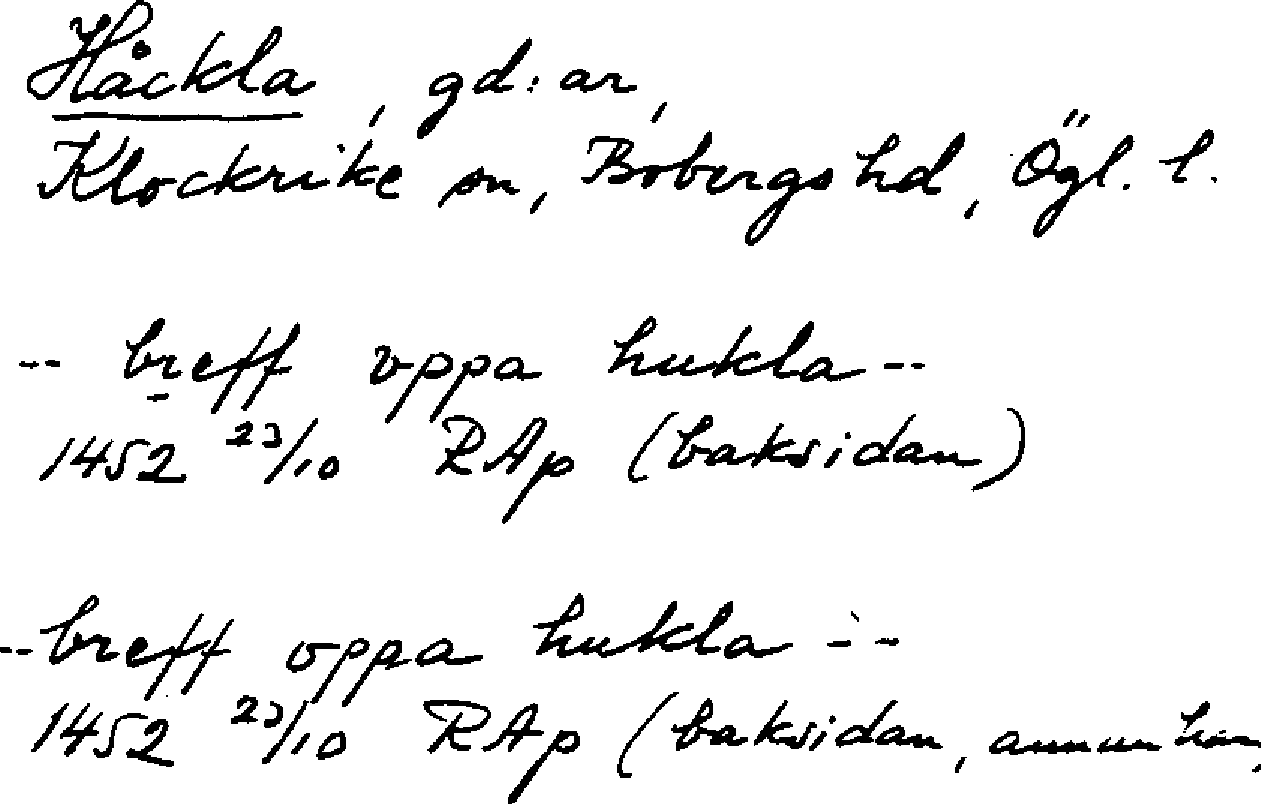 Håckla, gd:ar,
Klockrike sn, Bobergs hd, Ögl. l.
-- breff vppa hukla --
1452 23/10 RAp (baksidan)
-- breff oppa hukla --
1452 23/10 RAp (baksidan, annan